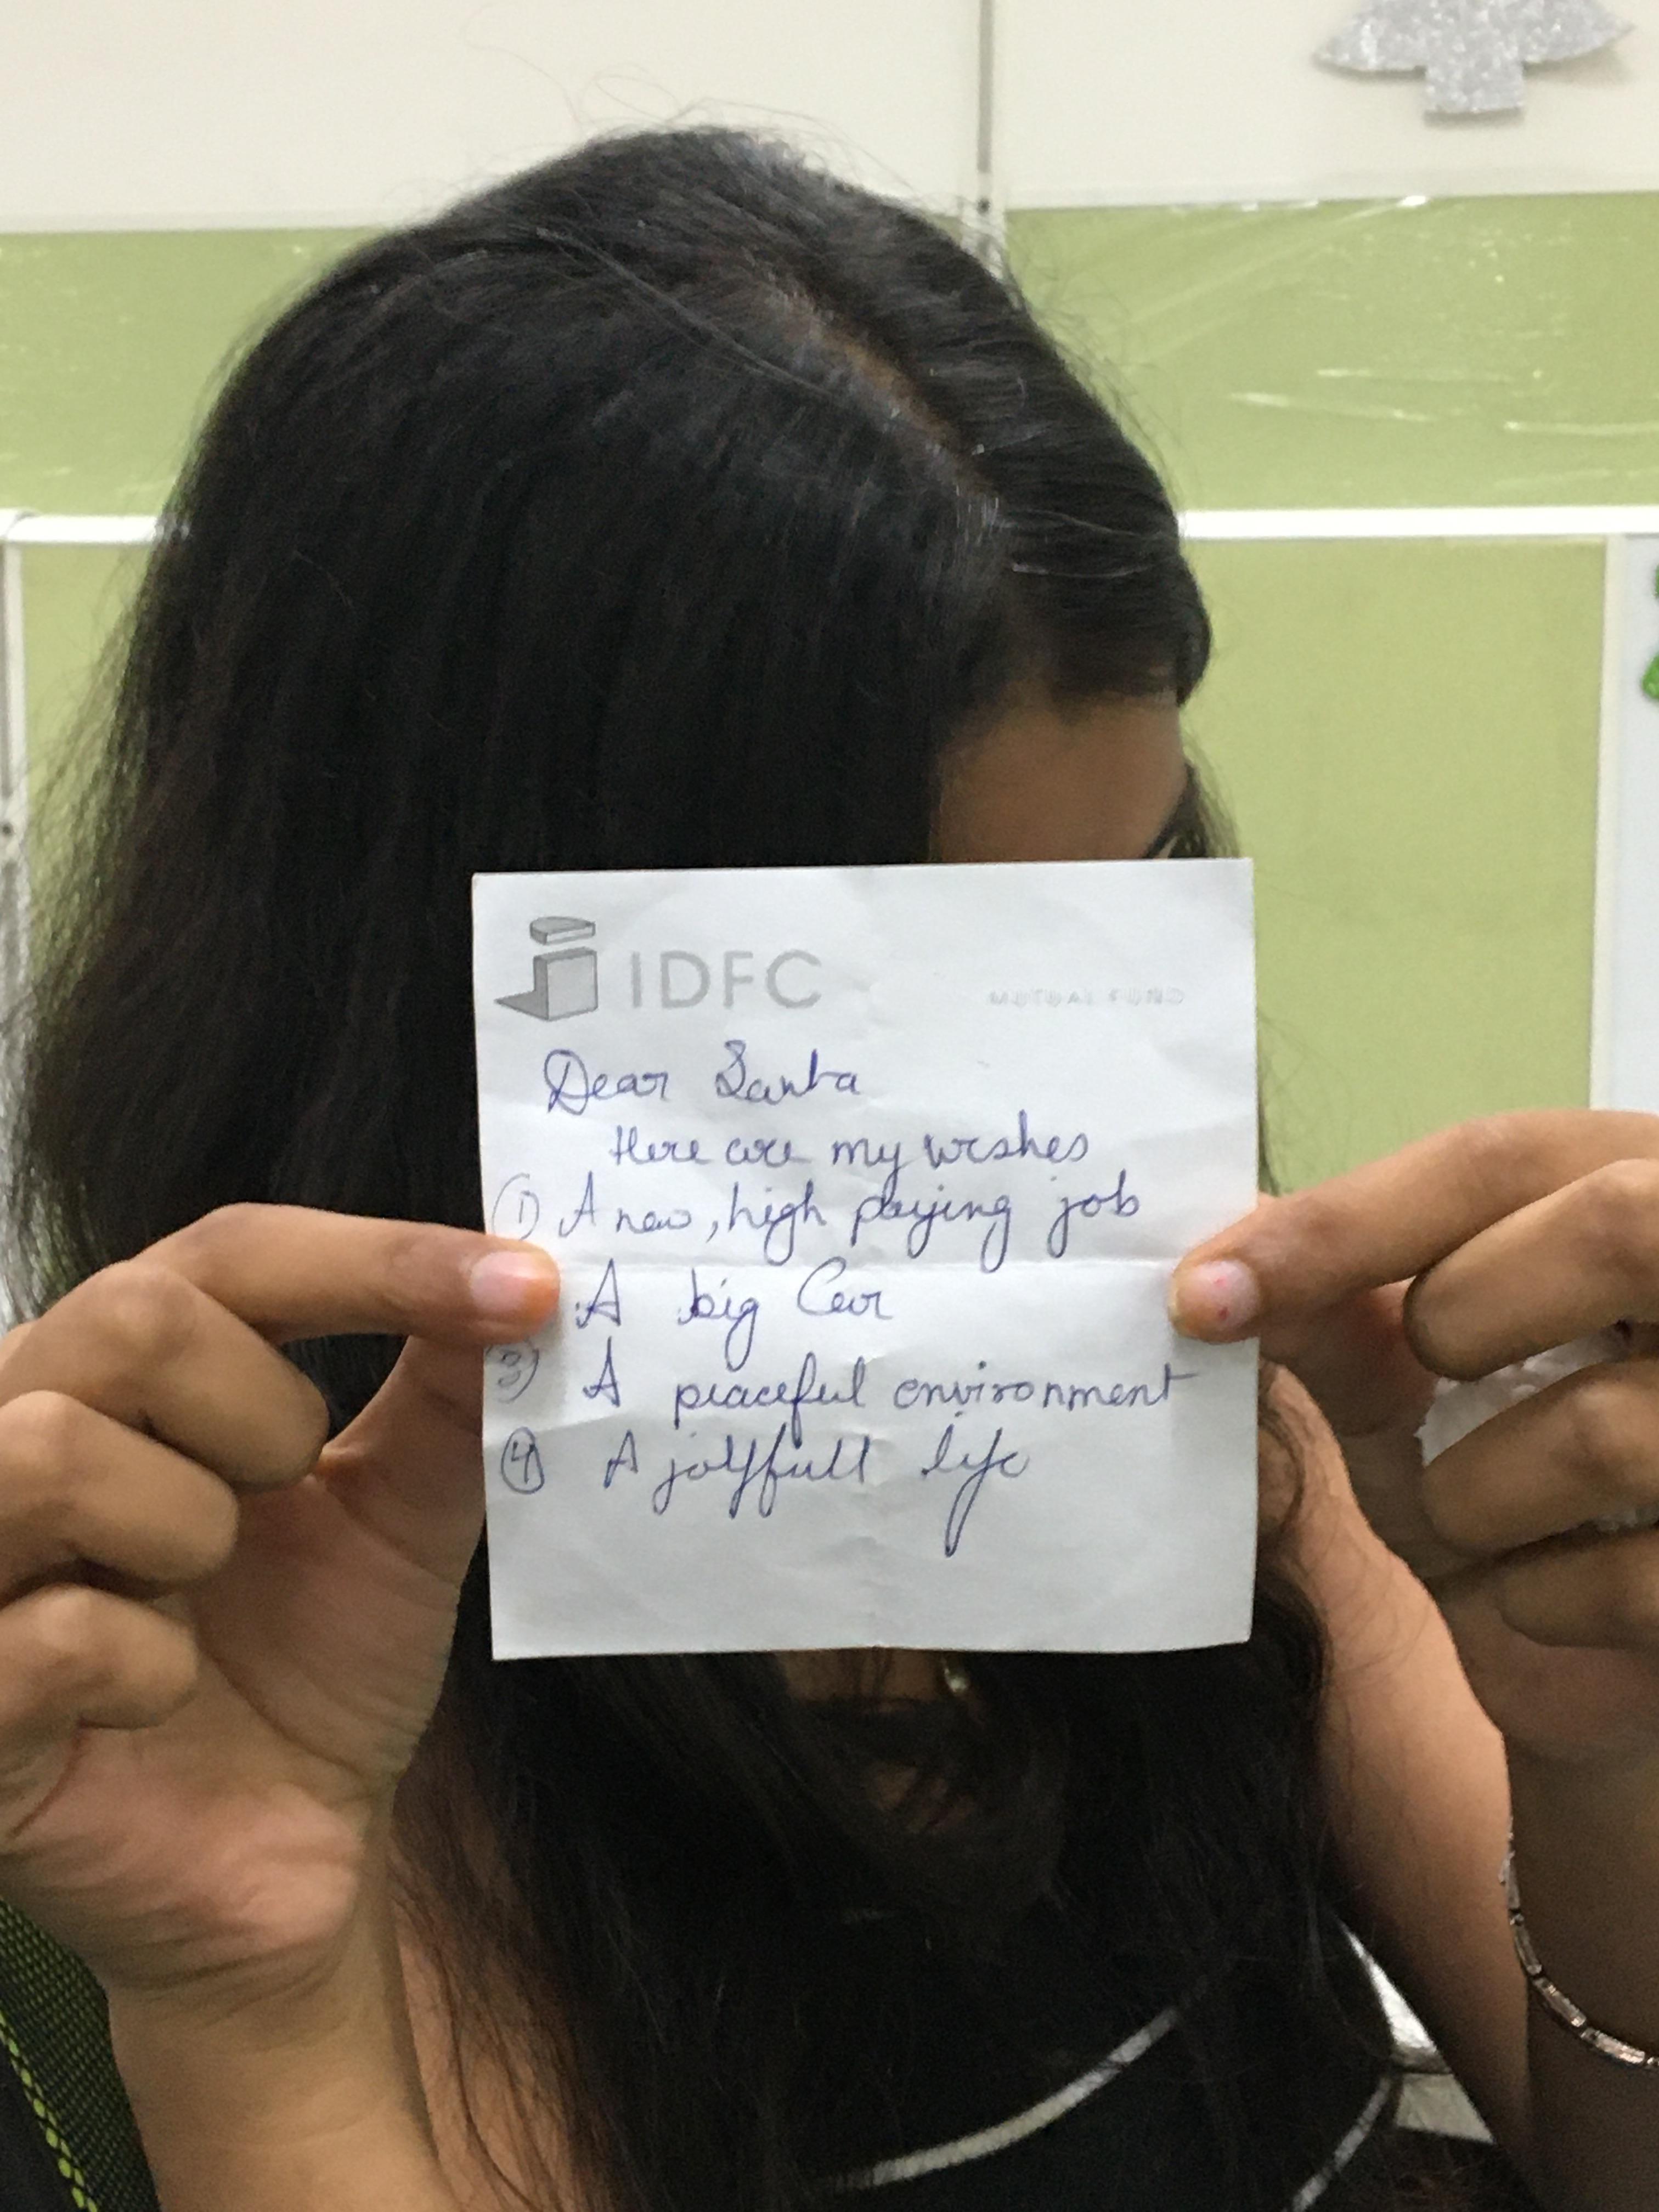 IDFC MUTUAL FUND
Dear Santa
Here are my wishes
① A new, high paying job
A big Car
3) A peaceful environment
④ A joyfull life